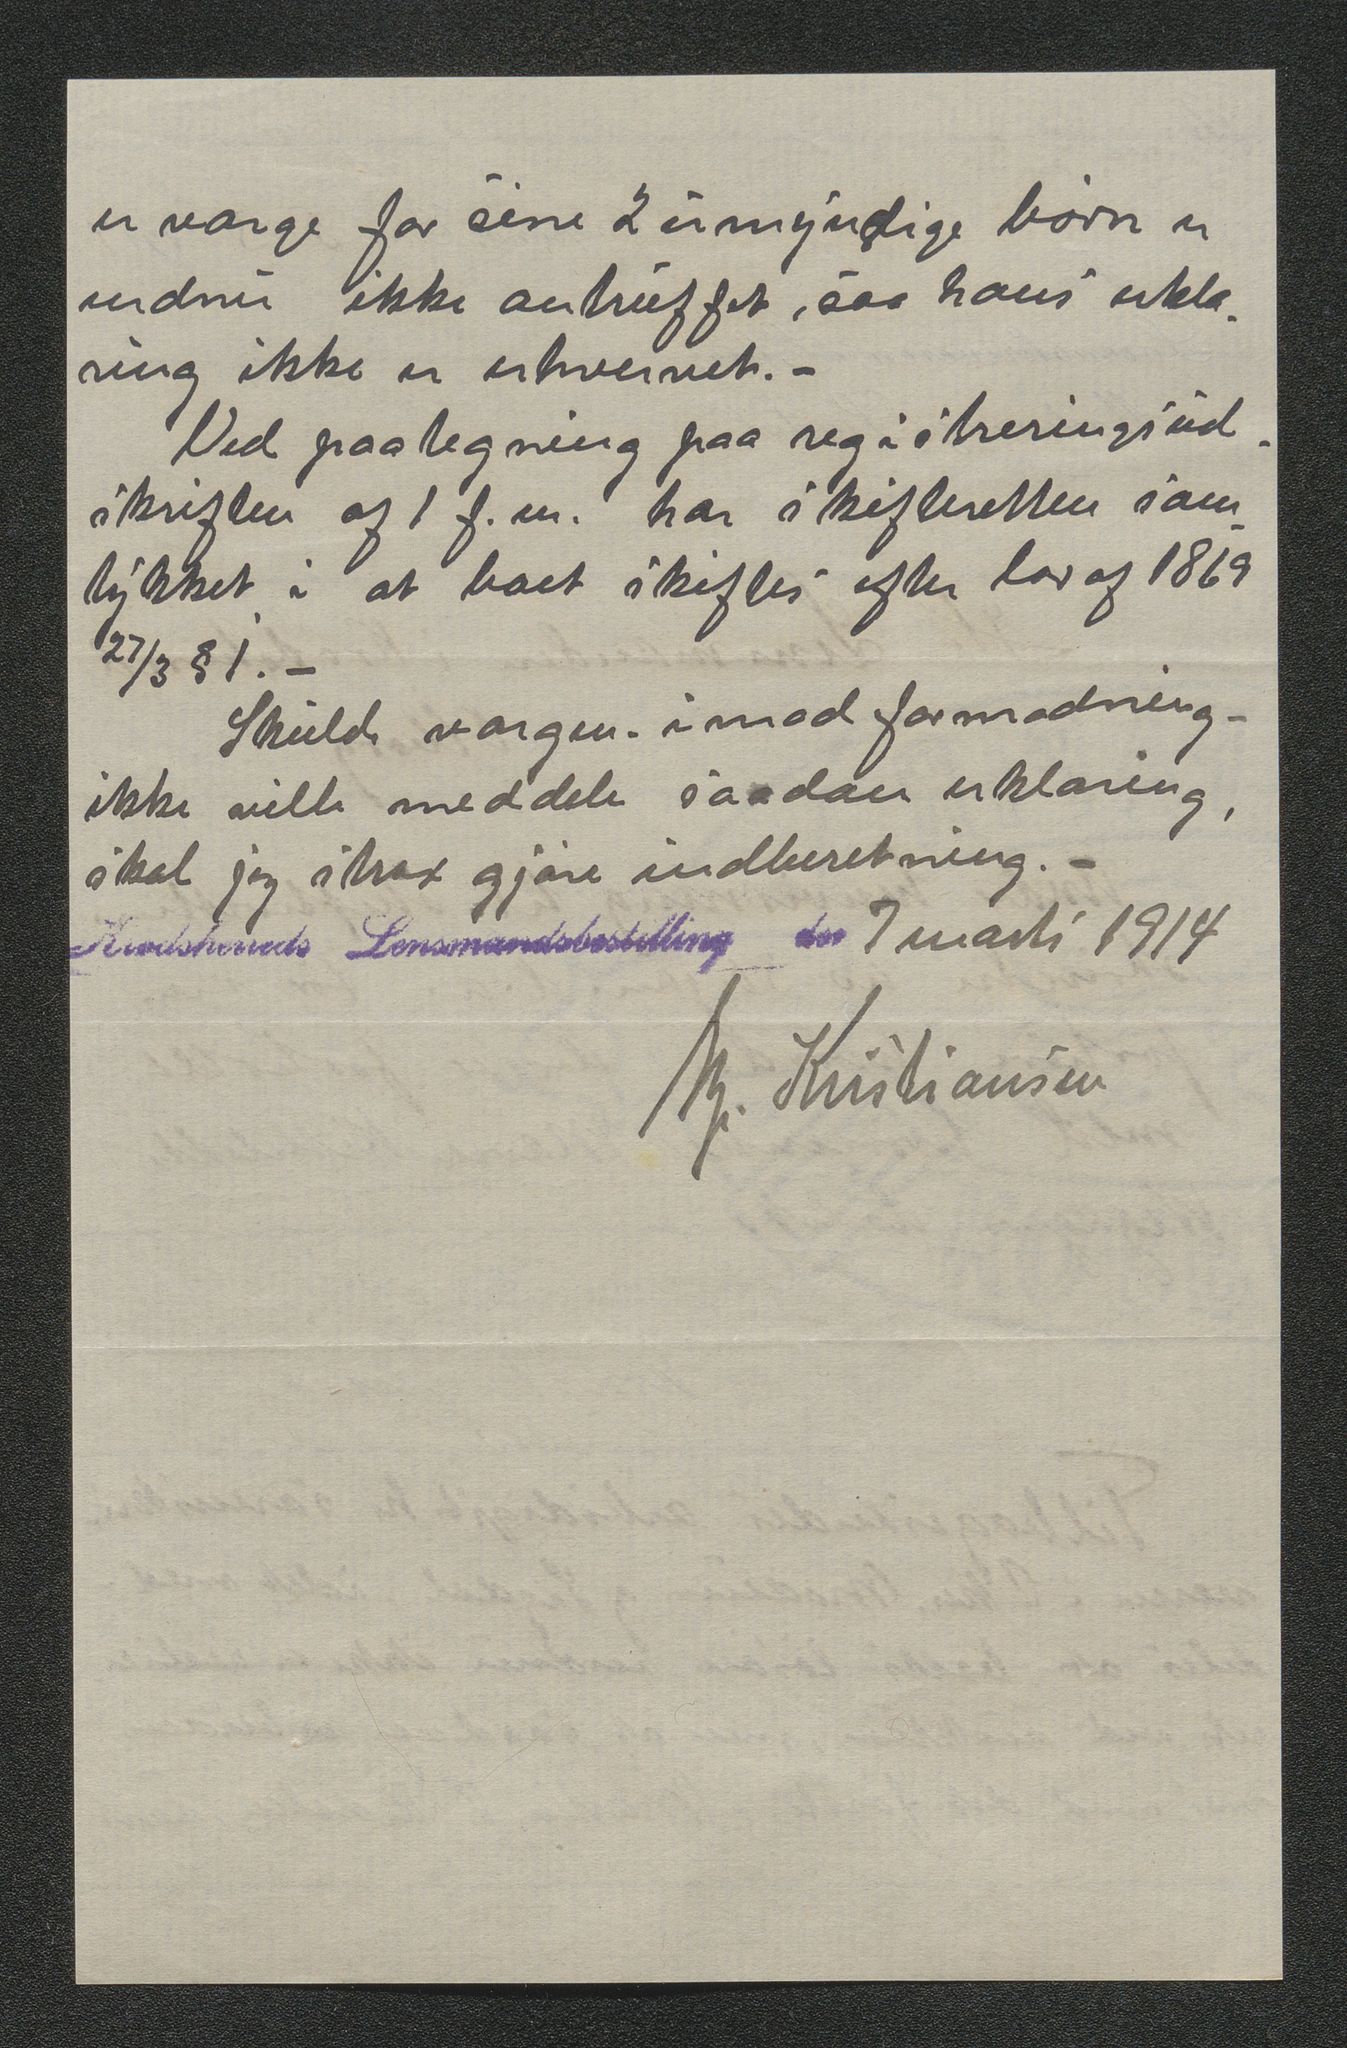 er værge for sine 2 umyndige børn er
endnu ikke antruffet, saa hans erklæ-
ring ikke er erhvervet. -
Ved paategning paa registreringsud-
skriften af 1 f.m. har skifteretten sam-
tykket i at boet skiftes efter lov af 1869
27/3 § 1. -
Skulde værgen - imod formodning -
ikke ville meddele saadan erklæring,
skal jeg strax gjøre indberetning. -
Krødshereds Lensmandsbestilling den 7 marts 1914
Kristiansen